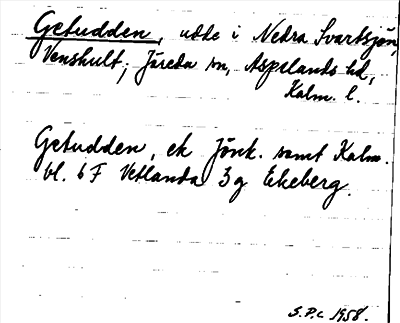 Getudden, udde i Nedra Svartsjön,
Venshult; Järeda sn, Aspelands hd,
Kalm. l.
Getudden, ek Jönk. samt Kalm.
bl. 6 F Vetlanda 3 g Ekeberg.
S.P.c 1958.